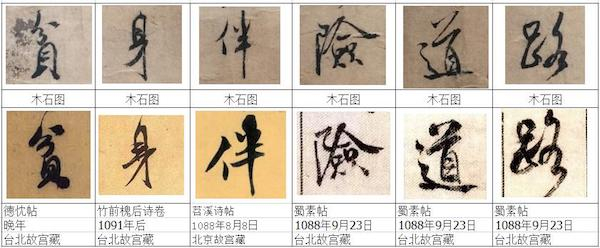 貧 身 伴 險 道 路
木石图 木石图 木石图 木石图 木石图 木石图
貧 身 伴 險 道 路
德忱帖 竹前槐后诗卷 苕溪诗帖 蜀素帖 蜀素帖 蜀素帖
晚年 1091年后 1088年8月8日 1088年9月23日 1088年9月23日 1088年9月23日
台北故宫藏 台北故宫藏 北京故宫藏 台北故宫藏 台北故宫藏 台北故宫藏